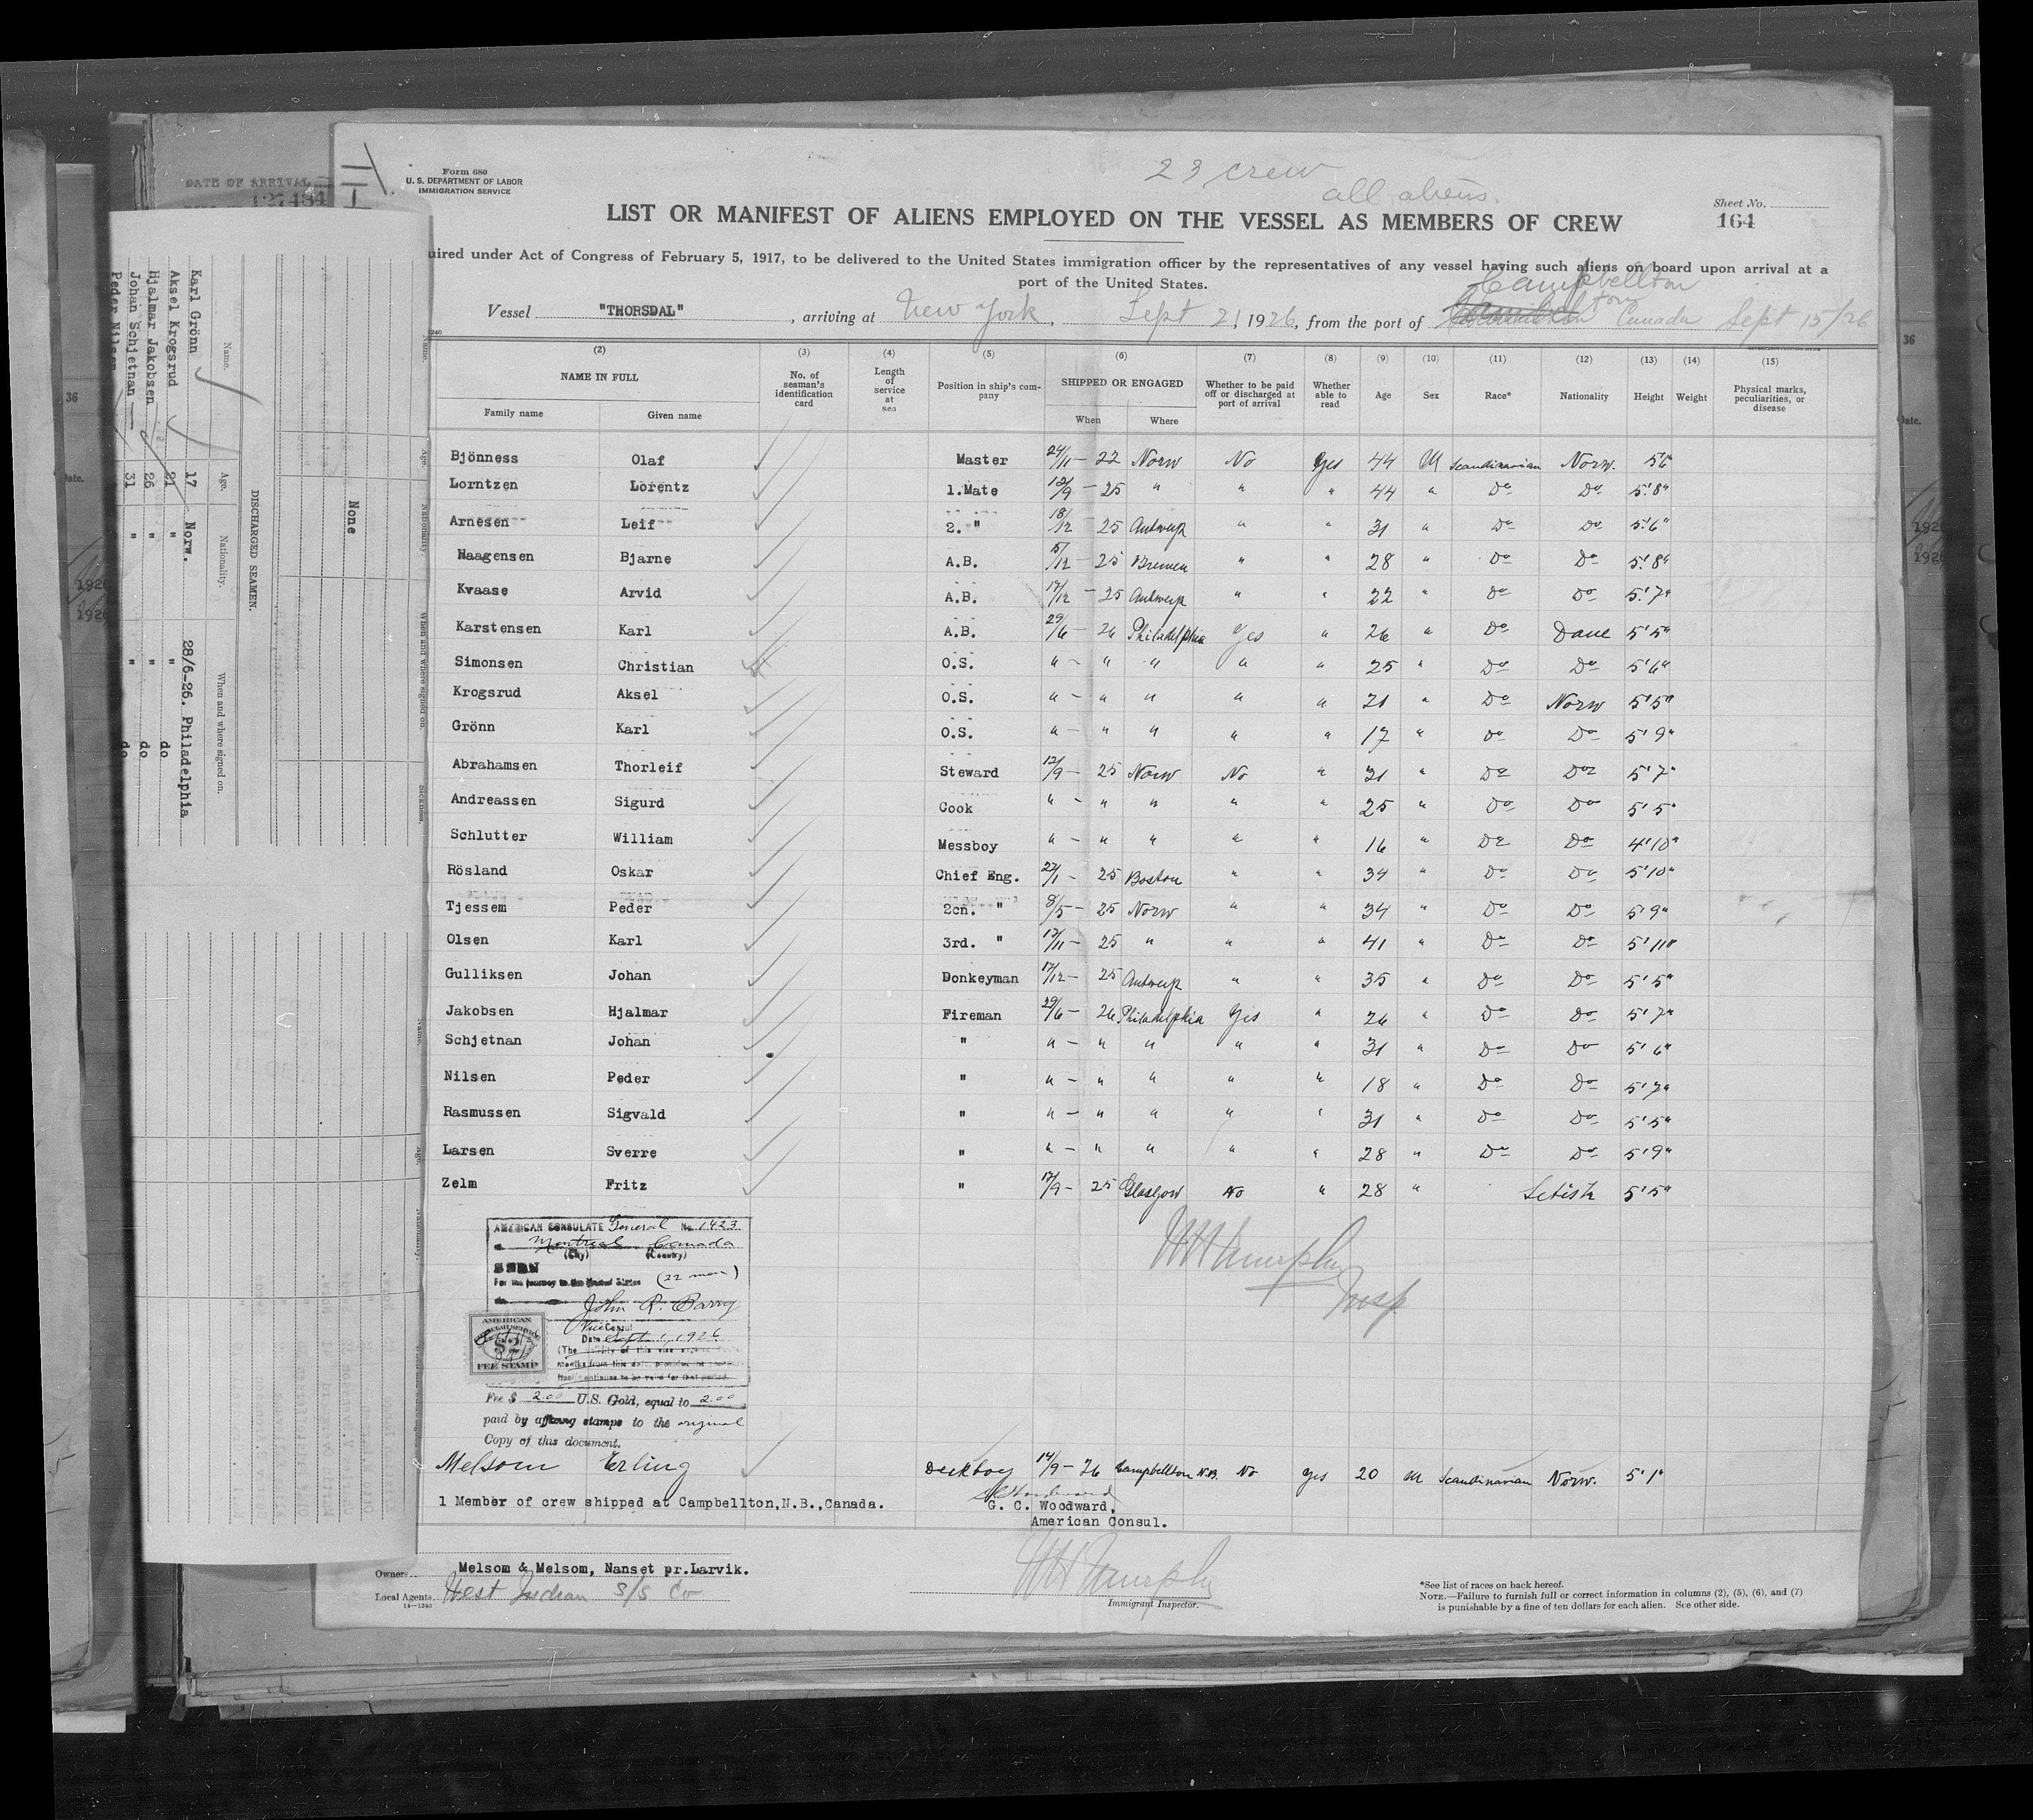 DATE OF ARRIVAL
127484
Form 680
U. S. DEPARTMENT OF LABOR
IMMIGRATION SERVICE
23 crew
all aliens.
Sheet No.
164
LIST OR MANIFEST OF ALIENS EMPLOYED ON THE VESSEL AS MEMBERS OF CREW
uired under Act of Congress of February 5, 1917, to be delivered to the United States immigration officer by the representatives of any vessel having such aliens on board upon arrival at a
port of the United States.
Campbellton
Vessel "THORSDAL", arriving at New York, Sept 21, 1926, from the port of Canada Sept 15/26
(2) (3) (4) (5) (6) (7) (8) (9) (10) (11) (12) (13) (14) (15)
NAME IN FULL
Family name Given name
No. of seaman's identification card
Length of service at sea
Position in ship's company
SHIPPED OR ENGAGED
When Where
Whether to be paid off or discharged at port of arrival
Whether able to read
Age Sex Race* Nationality Height Weight
Physical marks, peculiarities, or disease
Bjönness Olaf Master 24/11-22 Norw No Yes 44 M Scandinavian Norw. 5'6"
Lorntzen Lorentz 1.Mate 12/9-25 " " " 44 " Do Do 5'8"
Arnesen Leif 2. " 18/12 25 Antwerp " " 31 " Do Do 5'6"
Haagensen Bjarne A.B. 5/12-25 Bremen " " 28 " Do Do 5'8"
Kvaase Arvid A.B. 17/12-25 Antwerp " " 22 " Do Do 5'7"
Karstensen Karl A.B. 29/6-26 Philadelphia Yes " 26 " Do Dane 5'5"
Simonsen Christian O.S. " - " " " " 25 " Do Do 5'6"
Krogsrud Aksel O.S. " - " " " " 21 " Do Norw 5'5"
Grönn Karl O.S. " - " " " " 17 " Do Do 5'9"
Abrahamsen Thorleif Steward 12/9-25 Norw No " 31 " Do Do 5'7"
Andreassen Sigurd Cook " - " " " " 25 " Do Do 5'5"
Schlutter William Messboy " - " " " " 16 " Do Do 4'10"
Rösland Oskar Chief Eng. 27/1-25 Boston " " 34 " Do Do 5'10"
Tjessem Peder 2cn. " 8/5-25 Norw " " 34 " Do Do 5'9"
Olsen Karl 3rd. " 17/11-25 " " " 41 " Do Do 5'11"
Gulliksen Johan Donkeyman 17/12-25 Antwerp " " 35 " Do Do 5'5"
Jakobsen Hjalmar Fireman 29/6-26 Philadelphia Yes " 26 " Do Do 5'7"
Schjetnan Johan " " - " " " " 31 " Do Do 5'6"
Nilsen Peder " " - " " " " 18 " Do Do 5'7"
Rasmussen Sigvald " " - " " " " 31 " Do Do 5'5"
Larsen Sverre " " - " " " " 28 " Do Do 5'9"
Zelm Fritz " 17/9-25 Glasgow No " 28 " 5'5"
AMERICAN CONSULATE General No. 1423
Montreal Canada
(City) (Country)
SEEN
For the journey to the United States (22 men)
John R. Barry
Vice Consul
Date Sept 1, 1926
AMERICAN
$2
FEE STAMP
Fee $ 2.00 U.S. Gold, equal to 2.00
paid by affixing stamps to the original
Copy of this document.
W H Murphy
Insp
Melsom Erling Deckboy 14/9-26 Campbellton N.B. No Yes 20 M Scandinavian Norw. 5'1"
1 Member of crew shipped at Campbellton,N.B.,Canada.
G. C. Woodward,
American Consul.
Owners Melsom & Melsom, Nanset pr.Larvik.
Local Agents West Indian S/S Co
14-1240
W H Murphy
Immigrant Inspector.
*See list of races on back hereof.
NOTE.—Failure to furnish full or correct information in columns (2), (5), (6), and (7)
is punishable by a fine of ten dollars for each alien. See other side.
DISCHARGED SEAMEN.
Name. Age. Nationality. When and where signed on.
None
Karl Grönn 17 Norw. 28/6-26. Philadelphia
Aksel Krogsrud 21 " " do
Hjalmar Jakobsen 26 " " do
Johan Schjetnan 31 " " do
Peder Nilsen
36
Date.
1926
1926